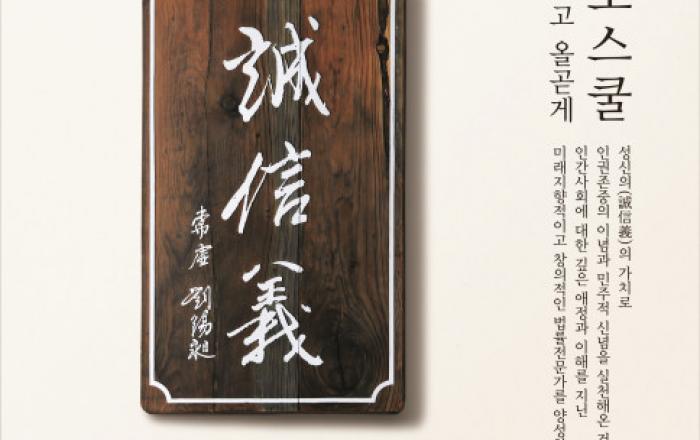 誠信義
常虛 劉錫昶
스쿨
고 올곧게
성신의(誠信義)의 가치로
인권존중의 이념과 민주적 신념을 실천해온
인간사회에 대한 깊은 애정과 이해를 지닌
미래지향적이고 창의적인 법률전문가를